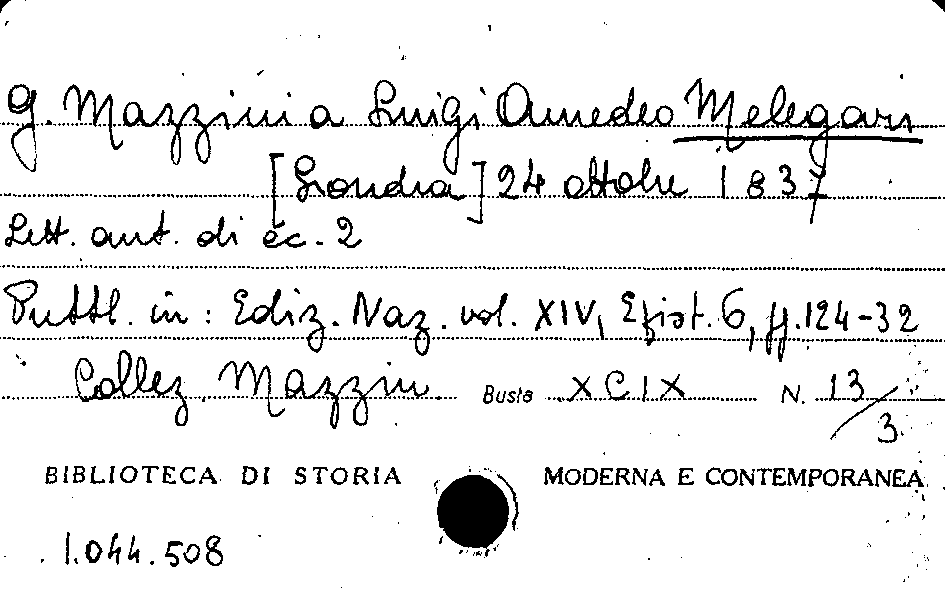 G. Mazzini a Luigi Amedeo Melegari
[Londra] 24 ottobre 1837
Lett. aut. di cc. 2
Pubbl. in: Ediz. Naz. vol. XIV, Epist. 6, pp. 124-32
Collez. Mazzini Busta XCIX N. 13/3
BIBLIOTECA DI STORIA MODERNA E CONTEMPORANEA
1.044.508